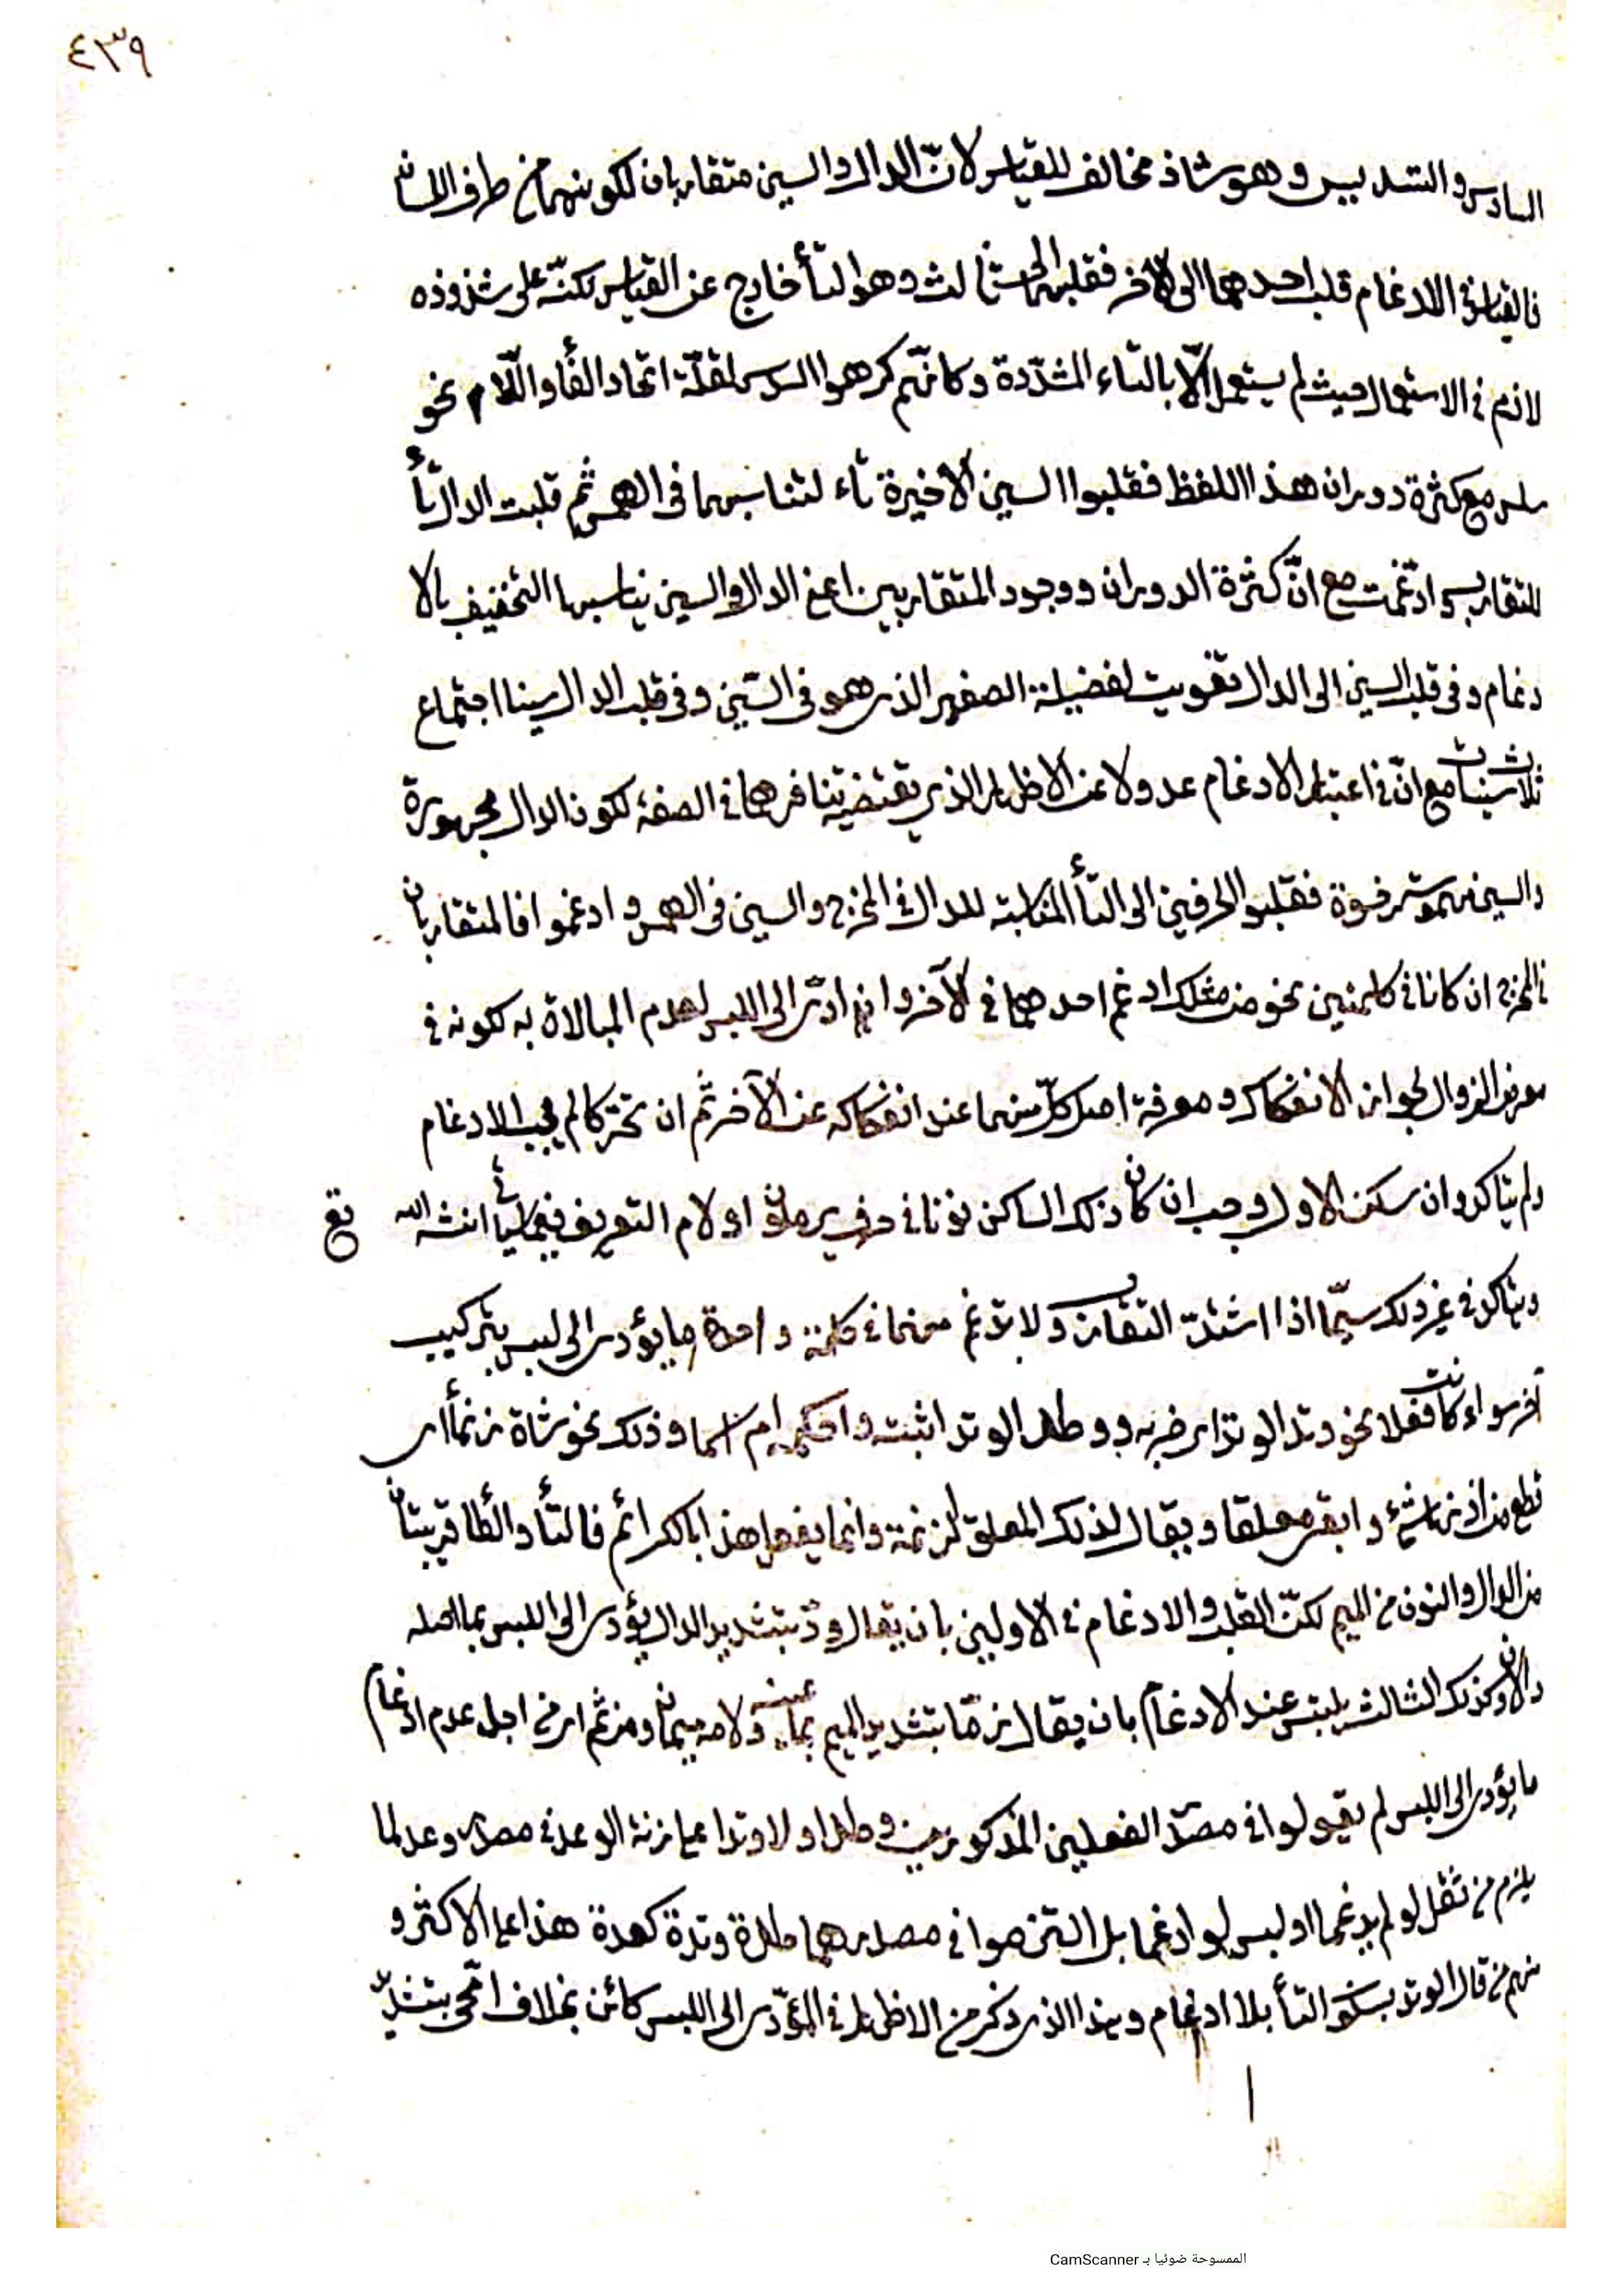 ٤٣٩
السادس والتسديس وهو شاذ مخالف للقياس لانّ الدال والسين متقاربان لكونهما من طرف اللسان
فالقياس في الادغام قلب احدهما الى الآخر فقلبهما الى ثالث وهو التأ خارج عن القياس لكنّه على شذوذه
لازم في الاستعمال حيث لم يستعمل الّا بالتاء المشدّدة وكانّهم كرهوا السدس لقلّة اتحاد الفأ واللّام نحو
سلس مع كثرة دوران هذا اللفظ فقلبوا السين الاخيرة تاء لتناسبهما في الهمس ثم قلبت الدال تأ
للتقارب وادغمت مع انّ كثرة الدوران ووجود المتقاربين اعني الدال والسين يناسبها التخفيف بالا
دغام وفي قلب السين الى الدال تفويت لفضيلة الصفير الذي هو في السّين وفي قلب الدال سينا اجتماع
ثلاث سينات مع انّ في اعتبار الادغام عدولا عن الاظهار الذي يقتضيه تنافرهما في الصفة لكون الدال مجهورة
والسين مهموسة رخوة فقلبوا الحرفين الى التأ المناسبة للدال في المخرج والسين في الهمس وادغموا فالمتقاربان
في المخرج ان كانا في كلمتين نحو من مثلك ادغم احدهما في الآخر وان ادّى الى اللبس لعدم المبالاة به لكونه في
معرض الزوال لجواز الانفكاك ومعرفة اصل كلّ منهما عند انفكاكه عن الآخر ثم ان تحرّكا لم يجب الادغام
ولم يتأكد وان سكن الاول وجب ان كان ذلك الساكن نونا في حروف يرملون او لام التعريف فيما يأتي انشالله تع
ويتأكد في غير ذلك سيّما اذا اشتدّ التقارب ولا تدغم منهما في كلمة واحدة ما يؤدي الى لبس بتركيب
آخر سواء كانت فعلا نحو وتد الوتد اي ضربه ووطد الوتد اثبته واحكمه ام اسما وذلك نحو شاة زنمأ اي
قطع من اذنها شيء وابقي معلقا ويقال لذلك المعلق الزنمة وانما يفعل هذا بالكرائم فالتأ والطأ قريبتان
من الدال والنون من الميم لكنّ القلب والادغام في الاولين بان يقال ودّ بتشديد الدال يؤدي الى اللبس بما اصله
دالان وكذلك الثالث يلتبس عند الادغام بان يقال زمّا بتشديد الميم بما عينه ولامه ميمان ومن ثم اي من اجل عدم ادغام
ما يؤدي الى اللبس لم يقولوا في مصدر الفعلين المذكورين وطدا ولا وتدا على زنة الوعد في مصدر وعد لما
يلزم من ثقل لو لم يدغما او لبس لو ادغما بل التزموا في مصدرهما طدة وتدة كعدة هذا على الاكثر و
منهم من قال الوتد بسكون التأ بلا ادغام وهذا الذي ذكر من الاظهار في المؤدّي الى اللبس كائن بخلاف امّحى بتشديد
الممسوحة ضوئيا بـ CamScanner